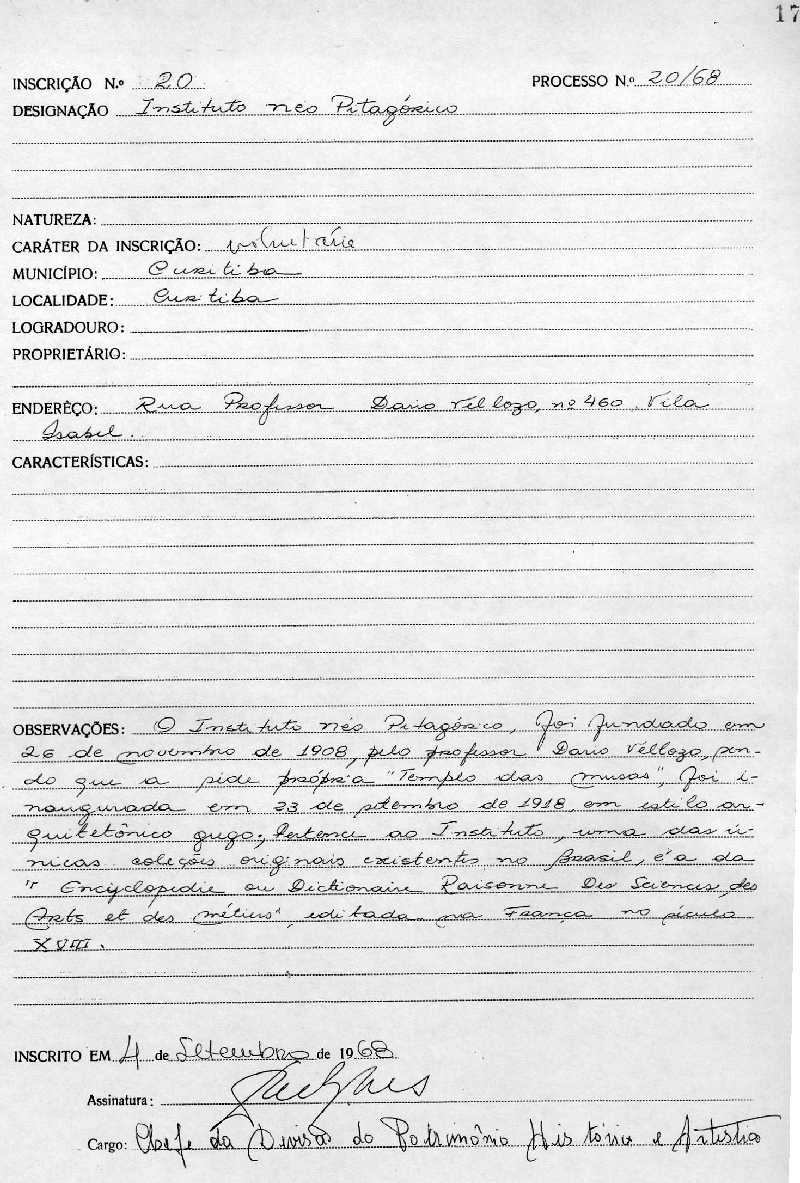 17
INSCRIÇÃO N.º 20 PROCESSO N.º 20/68
DESIGNAÇÃO Instituto neo Pitagórico
NATUREZA:
CARÁTER DA INSCRIÇÃO: voluntária
MUNICÍPIO: Curitiba
LOCALIDADE: Curitiba
LOGRADOURO:
PROPRIETÁRIO:
ENDERÊÇO: Rua Professor Dario Véllozo, nº 460. Vila
Isabel.
CARACTERÍSTICAS:
OBSERVAÇÕES: O Instituto néo Pitagórico, foi fundado em
26 de novembro de 1908, pelo professor Dario Véllozo, sen-
do que a séde própria "Templo das musas", foi i-
naugurada em 23 de setembro de 1918, em estilo ar-
quitetônico grego; Pertence ao Instituto, uma das ú-
nicas coleções originais existentes no Brasil, é a da
"Encyclopedie ou Dictionaire Raisonne Des Sciences, des
Arts et des métiers", editada na França no século
XVIII.
INSCRITO EM 4 de Setembro de 1968
Assinatura:
Cargo: Chefe da Divisão do Patrimônio Histórico e Artístico